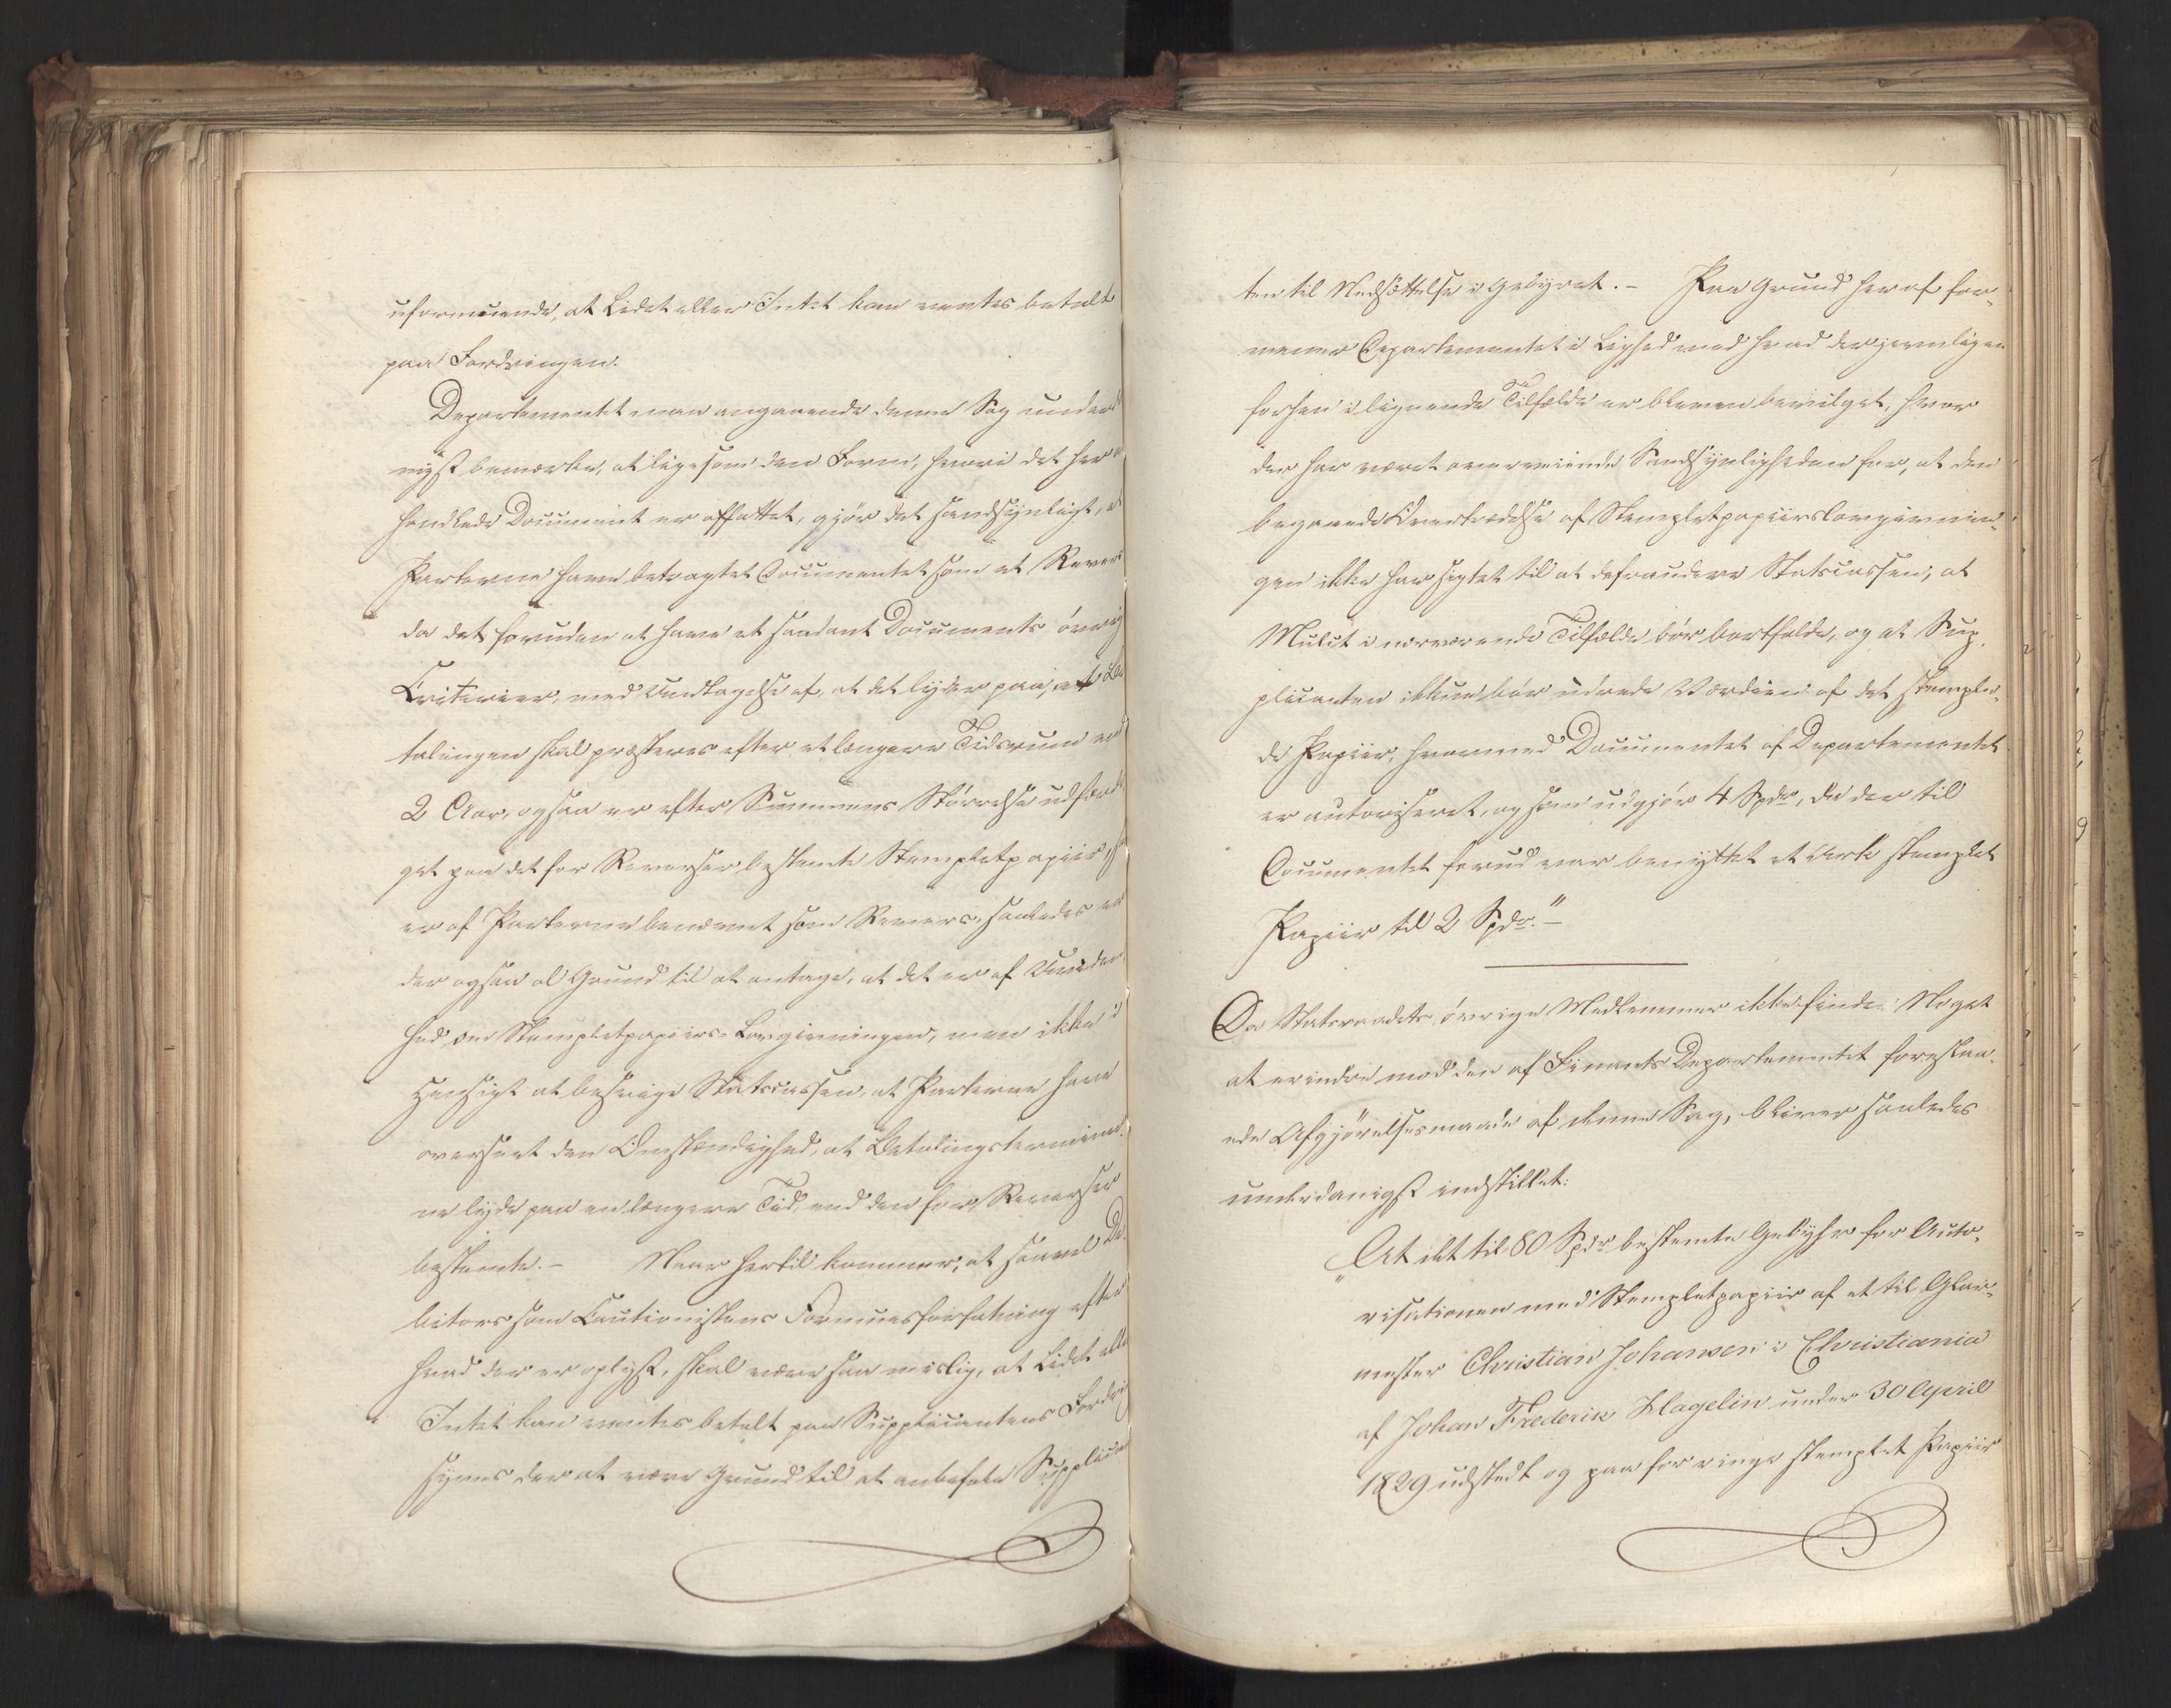 uformuende, at Lidet eller Intet kan ventes betalt
paa Fordringen.
Departementet maa angaaende denne Sag underd
nigst bemærke, at ligesom den Form, hvori det her
handlede Document er affattet, gjör det sandsynligt, at
Parterne have betragtet Documentet som et Revers
da det foruden at have et saadant Documents övrig
Criterier, med Undtagelse af, at det lyder paa, at Be
talingen skal præsteres efter et længere Tidsrum end
2 Aar, ogsaa er efter Summens Störrelse udfærdi
get paa det for Reverser bestemte Stempletpapiir,
er af Parterne benævnt som Revers, saaledes er
der ogsaa al Grund til at antage, at det er af Uviden
hed om Stempletpapiirs-Lovgivningen, men ikke i
Hensigt at besvige Statscassen, at Parterne have
overseet den Omstændighed, at Betalingstermine¬
ne lyde paa en længere Tid, end den for Reverser
bestemte. – Naar hertil kommer, at saavel De¬
bitors som Cautionistens Formuesforfatning efter
hvad der er oplyst, skal være saa mislig, at Lidet elle
Intet kan ventes betalt paa Supplicantens Fordri
synes der at være Grund til at anbefale Supplican
ten til Nedsættelse i Gebyret. – Paa Grund heraf for¬
mener Departementet i Lighed med hvad der jevnligen
forhen i lignende Tilfælde er bleven bevilget, hvor
der har været overveiende Sandsynligheden for, at den
begaaede Overtrædelse af Stempletpapiirslovgivnin¬
gen ikke har sigtet til at defraudere Statscassen, at
Mulct i nærværende Tilfælde bör bortfalde, og at Sup¬
plicanten ikkun bör udrede Værdien af det stemple¬
de Papiir, hvormed Documentet af Departementet
er autoriseret, og som udgjör 4 Spdr, da der til
Documentet forud var benyttet et Ark stemplet
Papiir til 2 Spdr."–
Da Statsraadets övrige Medlemmer ikke finde Noget
at erindre mod den af Finants Departementet foreslaa¬
ede Afgjörelsesmaade af denne Sag, bliver saaledes
underdanigst indstillet:
"At det til 80 Spdr bestemte Gebyhr for Auto¬
risationen med Stempletpapiir af et til Glar¬
mester Christian Johansen i Christiania
af Johan Frederik Hagelin under 30 April
1829 udstedt og paa for ringe stemplet Papiir